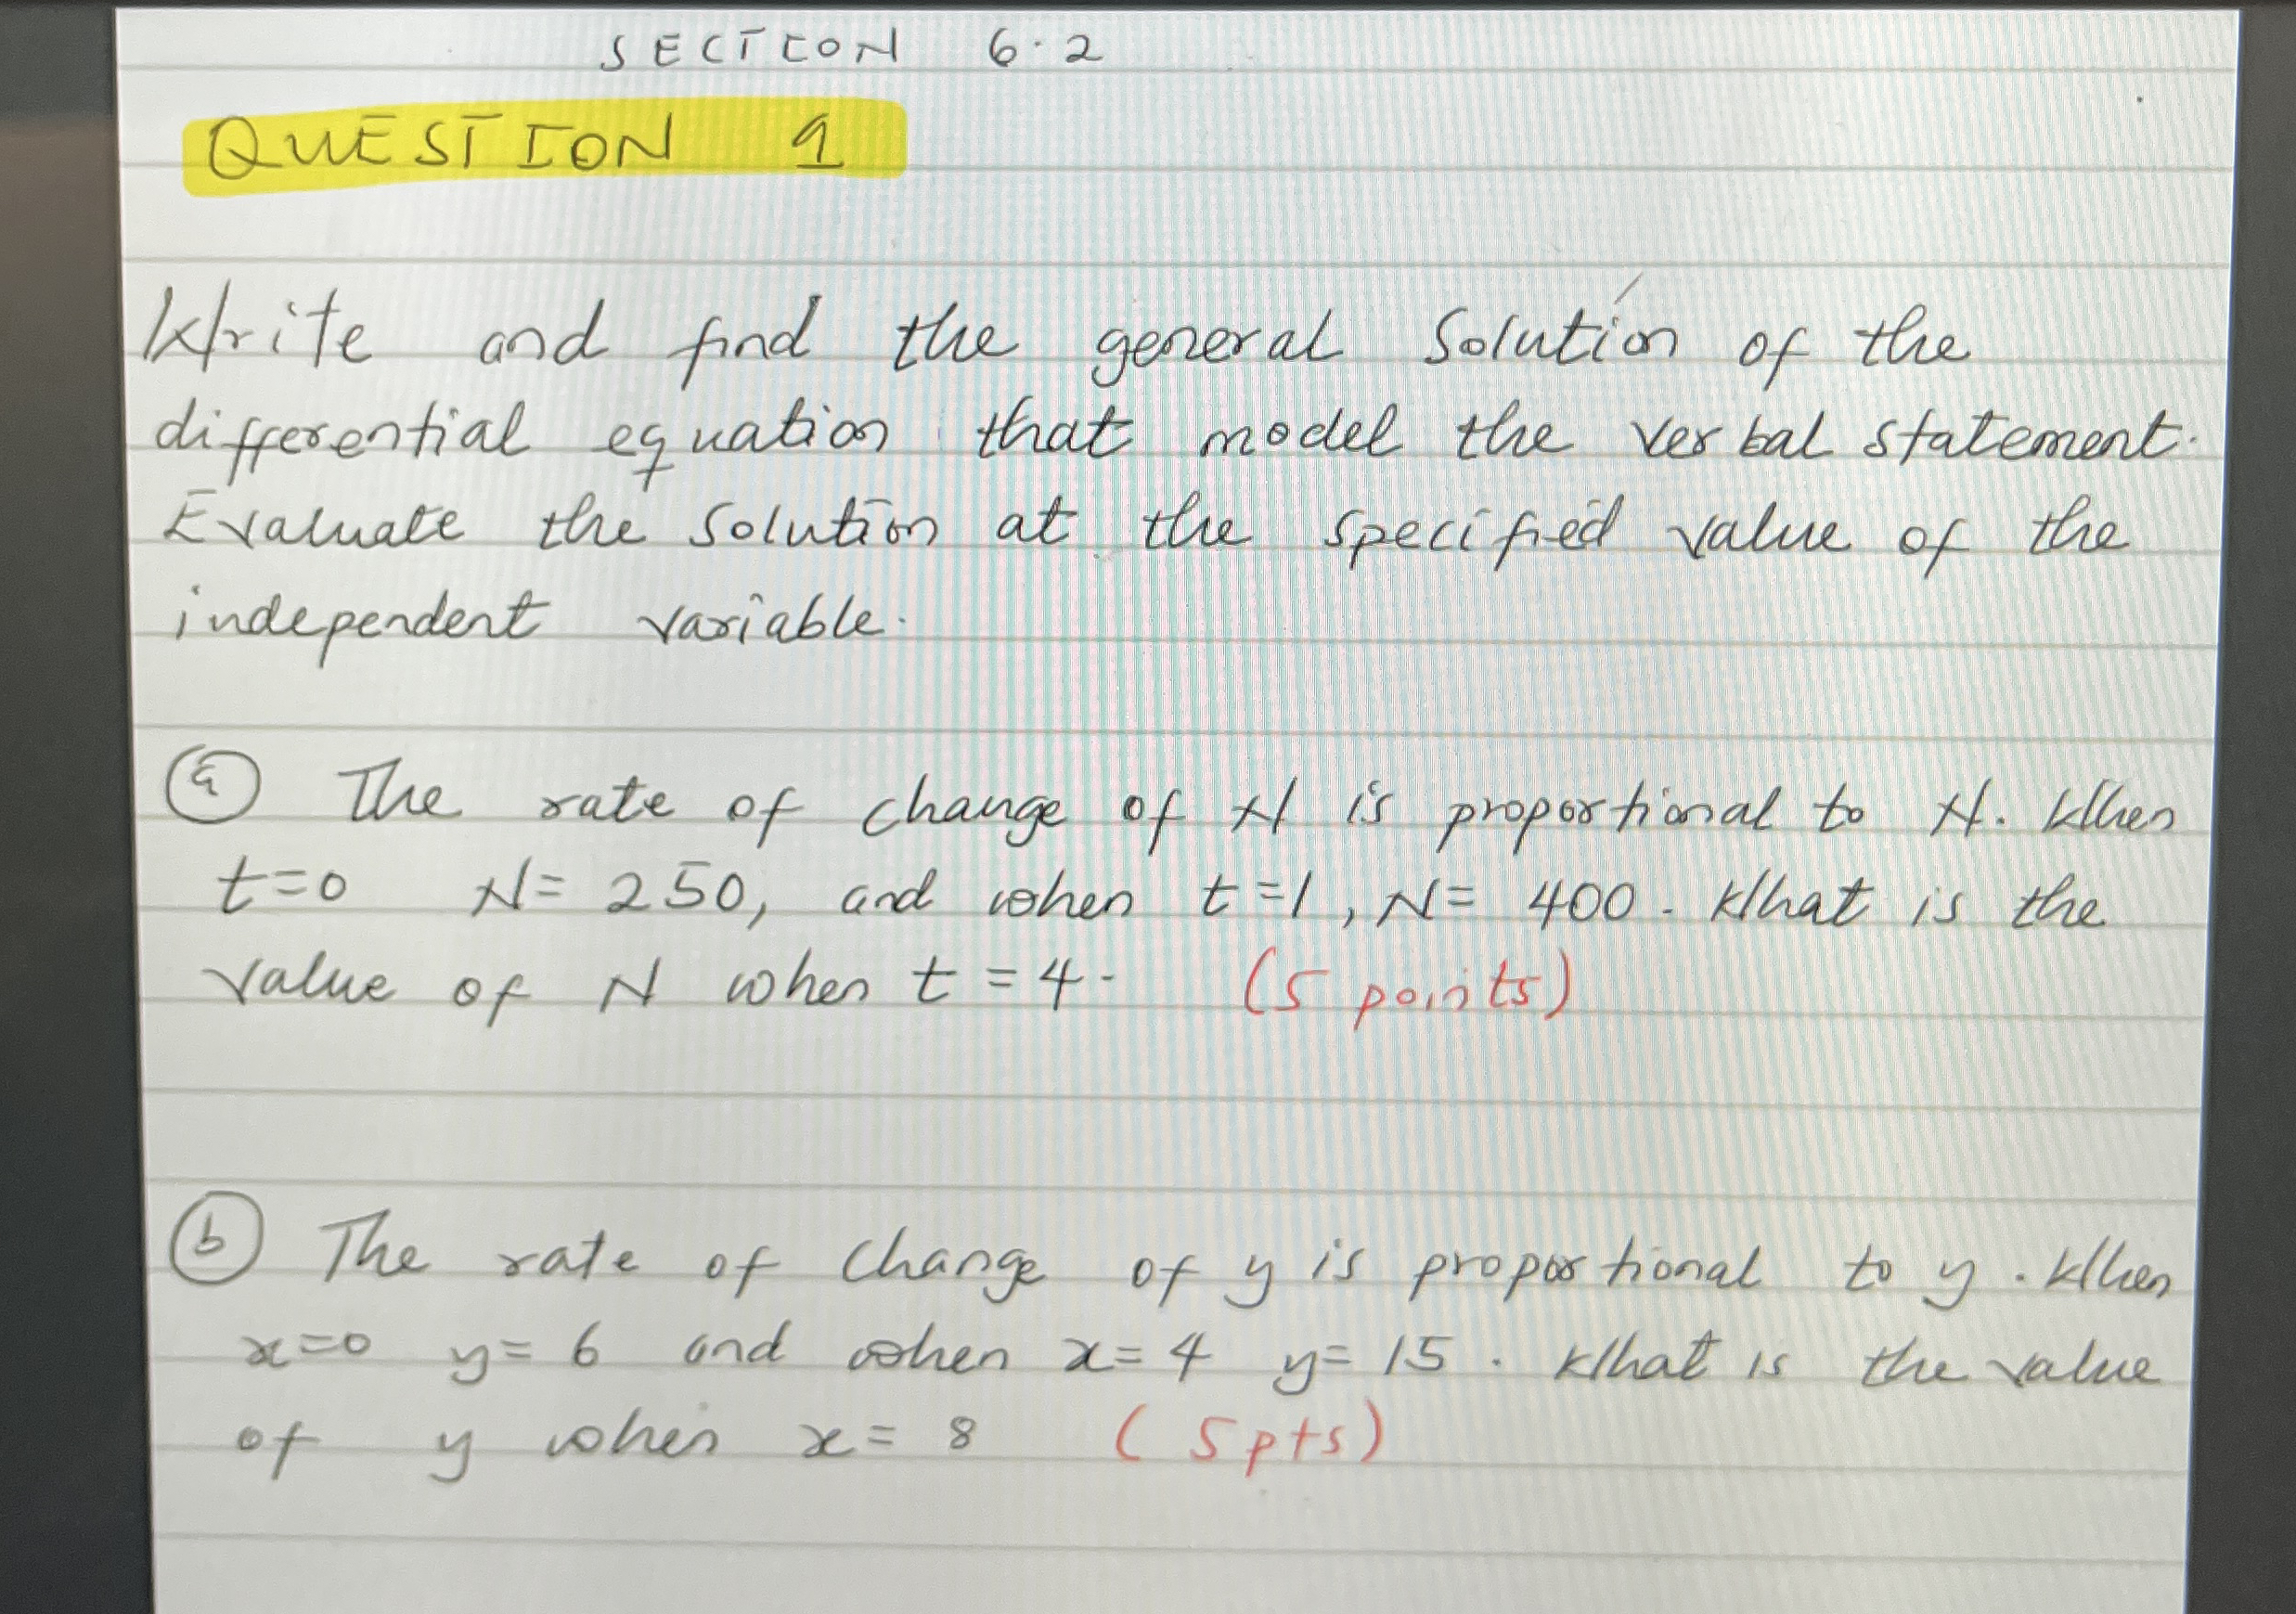 SECTION 6.2
QUESTION 1
Write and find the general solution of the
differential equation that model the verbal statement.
Evaluate the solution at the specified value of the
independent variable.
(a) The rate of change of N is proportional to N. When
t=0 N= 250, and when t=1, N= 400. What is the
value of N when t=4. (5 points)
(b) The rate of change of y is proportional to y. When
x=0 y= 6 and when x= 4 y= 15. What is the value
of y when x= 8 (5pts)